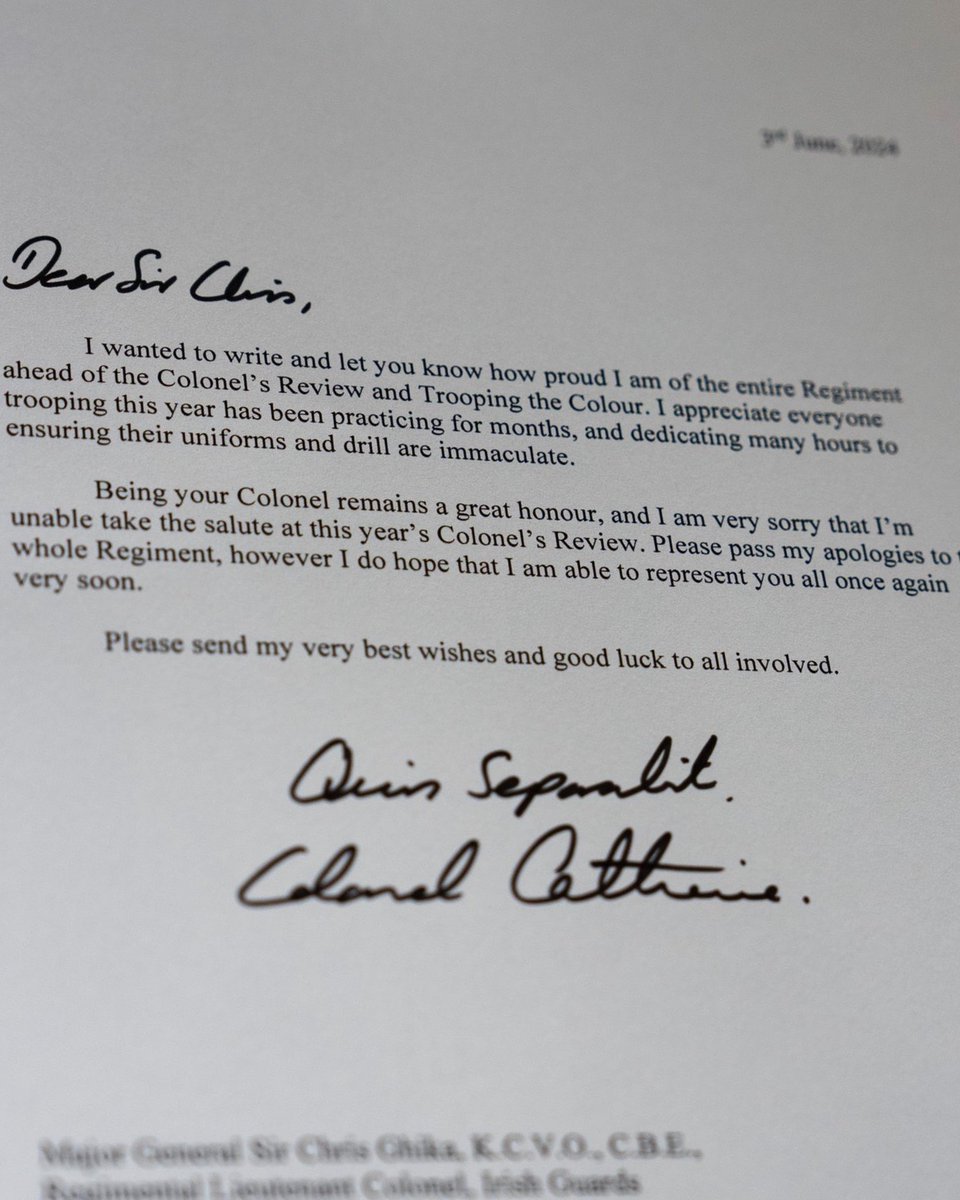 3rd June, 2024
Dear Sir Chris,
I wanted to write and let you know how proud I am of the entire Regiment
ahead of the Colonel's Review and Trooping the Colour. I appreciate everyone
trooping this year has been practicing for months, and dedicating many hours to
ensuring their uniforms and drill are immaculate.
Being your Colonel remains a great honour, and I am very sorry that I'm
unable take the salute at this year's Colonel's Review. Please pass my apologies to
whole Regiment, however I do hope that I am able to represent you all once again
very soon.
Please send my very best wishes and good luck to all involved.
Quis Separabit.
Colonel Catherine.
Major General Sir Chris Ghika, K.C.V.O., C.B.E.,
Regimental Lieutenant Colonel, Irish Guards